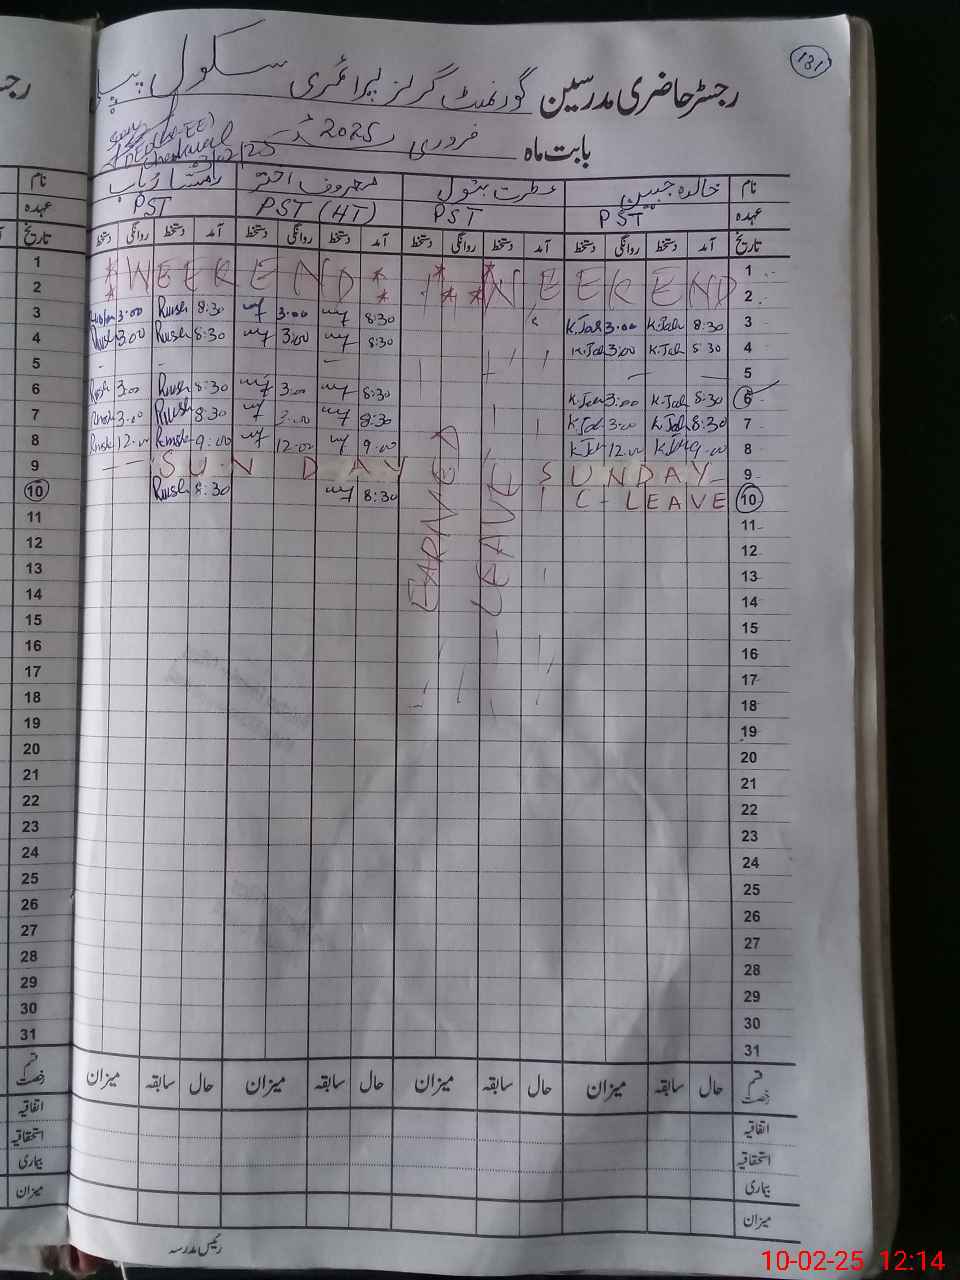 131
رجسٹر حاضری مدرسین گورنمنٹ گرلز پرائمری سکول
بابت ماہ فروری 2025ء
نام خالدہ جبیں عطرت بتول معروف اختر رمشا رباب
عہدہ PST PST PST (HT) PST
تاریخ آمد دستخط روانگی دستخط آمد دستخط روانگی دستخط آمد دستخط روانگی دستخط آمد دستخط روانگی دستخط
1 * WEEKEND * * * WEEKEND 1
2 * * * * 2
3 3.00 Rmsh 8:30 3.00 8:30 K.Jab 3:00 K.Jab 8:30 3
4 Rmsh 3.00 Rmsh 8:30 3:00 8:30 K.Jab 3:00 K.Jab 8:30 4
5 - - - - - 5
6 Rmsh 3.00 Rmsh 8:30 3.00 8:30 K.Jab 3:00 K.Jab 8:30 6
7 Rmsh 3.00 Rmsh 8:30 3.00 8:30 K.Jab 3:00 K.Jab 8:30 7
8 Rmsh 12.00 Rmsh 9:00 12:00 9:00 12.00 9:00 8
9 SUNDAY SUNDAY 9
10 Rmsh 8:30 8:30 C-LEAVE 10
EARNED LEAVE
11 11
12 12
13 13
14 14
15 15
16 16
17 17
18 18
19 19
20 20
21 21
22 22
23 23
24 24
25 25
26 26
27 27
28 28
29 29
30 30
31 31
قسم رخصت حال سابقہ میزان حال سابقہ میزان حال سابقہ میزان حال سابقہ میزان
اتفاقیہ
استحقاقیہ
بیماری
میزان
رئیس مدرسہ
10-02-25 12:14